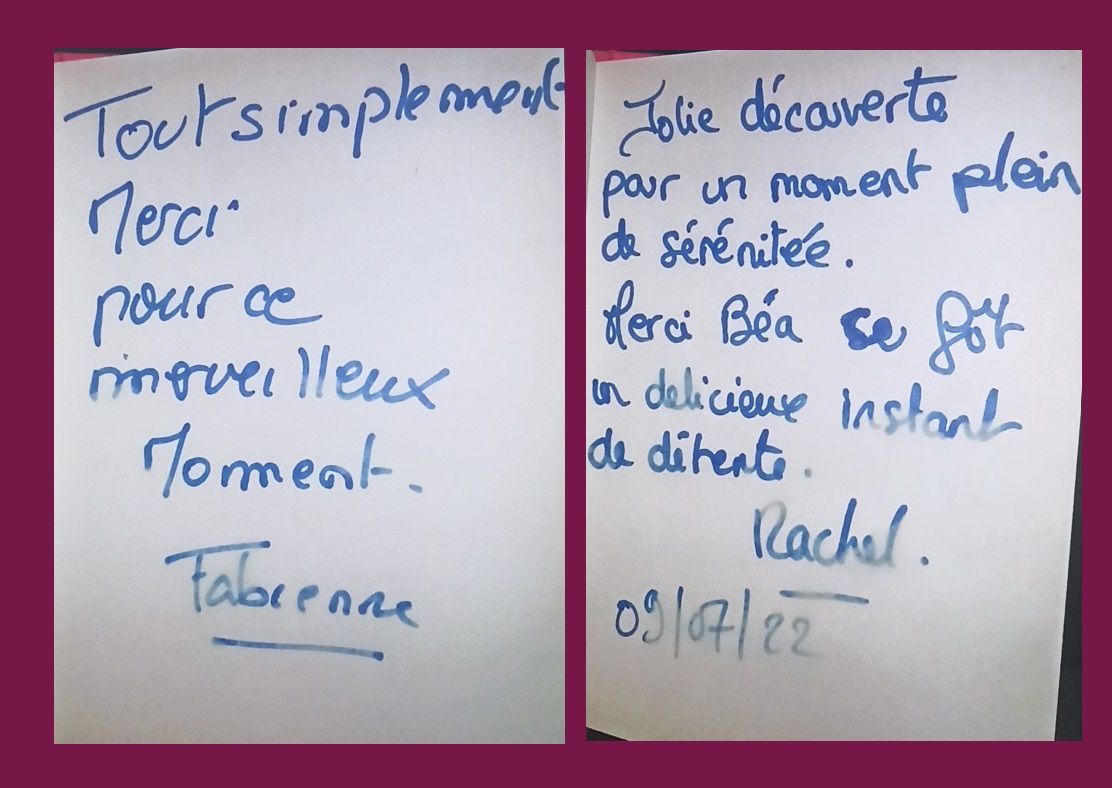 Tout simplement
Merci
pour ce
merveilleux
Moment.
Fabienne
Jolie découverte
pour un moment plein
de sérénitée.
Merci Béa se fût
un delicieux instant
de détente.
Rachel.
09/07/22